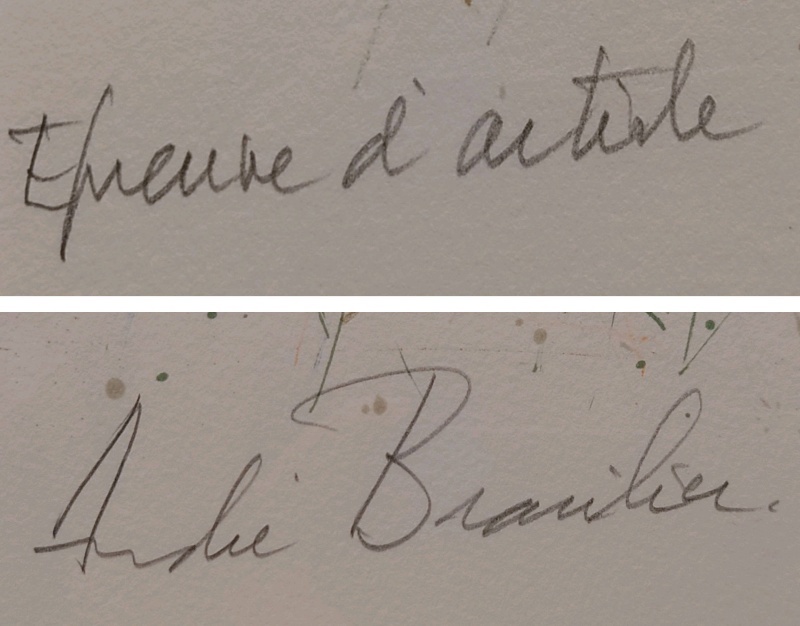 Epreuve d'artiste
André Brasilier.